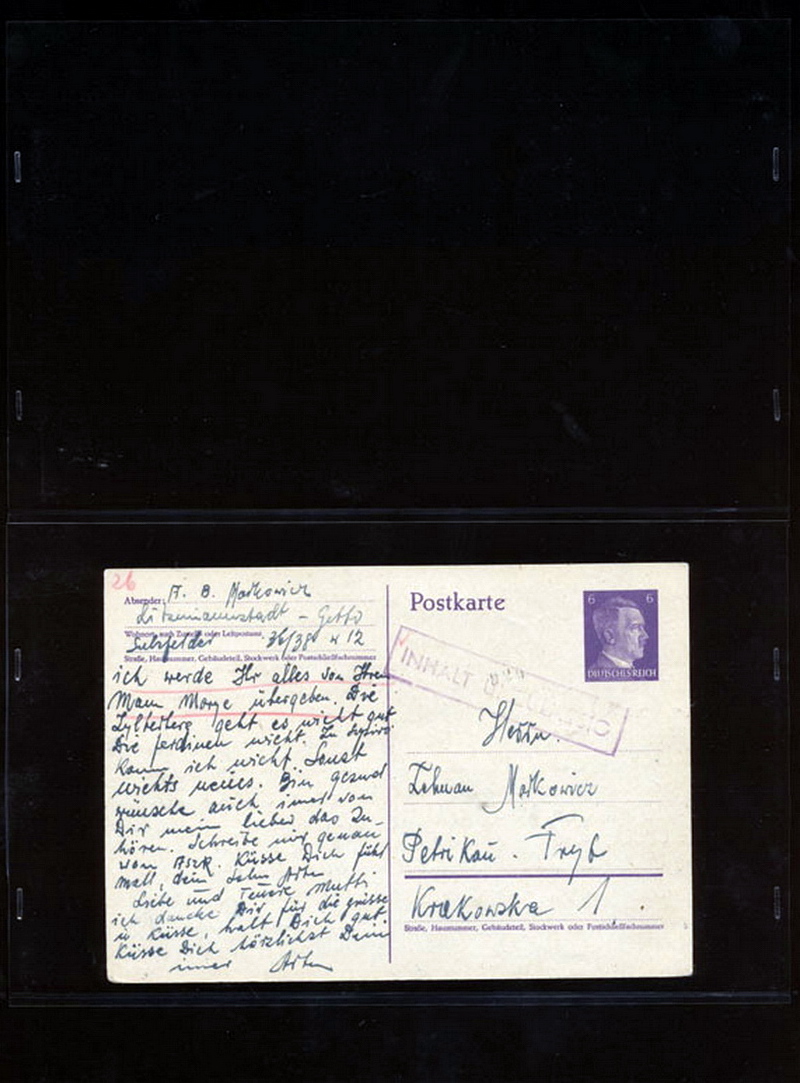 26
Absender: A. B. Markowicz
Litzmannstadt - Getto
Wohnort, auch Zustell- oder Leitpostamt
Sulzfelder 36/38 w 12
Straße, Hausnummer, Gebäudeteil, Stockwerk oder Postschließfachnummer
ich werde Ihr alles von Ihren
Mann Morge übergeben. Die
geht es nicht gut.
Die verdinen nicht. Zu
kann ich nicht. Sonst
nichts neues. Bin gesund
wünsche auch imer von
Dir mein lieber das Zu-
hören. Schreibe mir genau
von Küsse Dich fühl
mall, dein Sohn
Libe und Teuere Mutti
ich dancke Dir für die grüsse
u Küsse, halt Dich gut.
Küsse Dich härzlichst Dein
imer
Postkarte
6 6
DEUTSCHES REICH
INHALT UNZULÄSSIG
Herrn
Markowicz
Petrikau. Tryb
Krakowska 1.
Straße, Hausnummer, Gebäudeteil, Stockwerk oder Postschließfachnummer